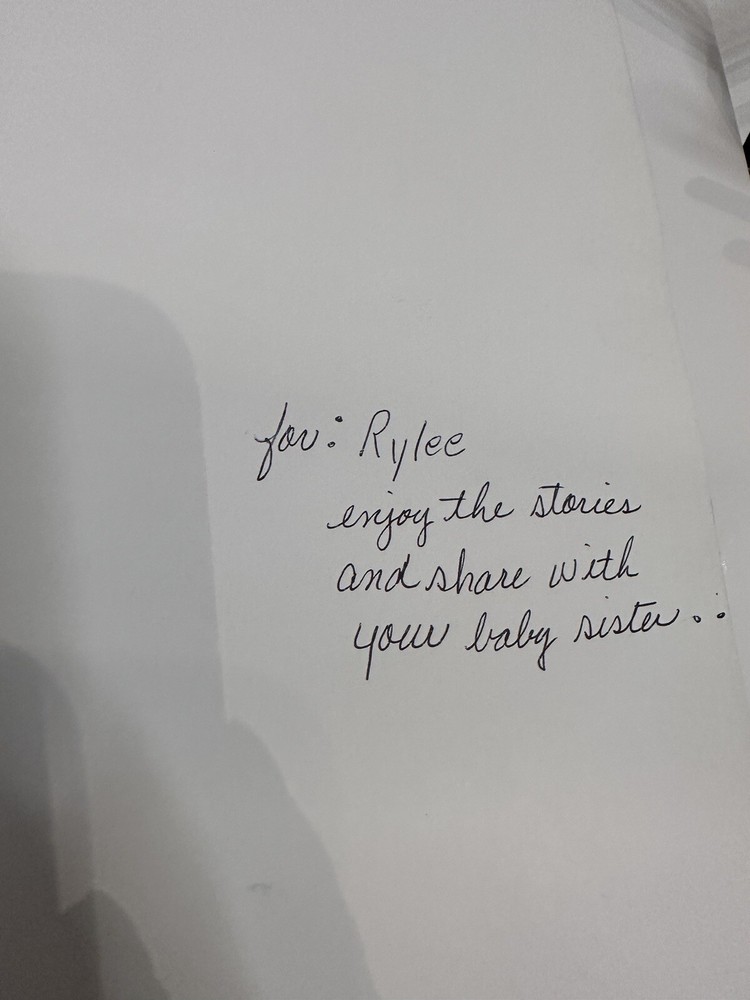 for: Rylee
enjoy the stories
and share with
your baby sister..